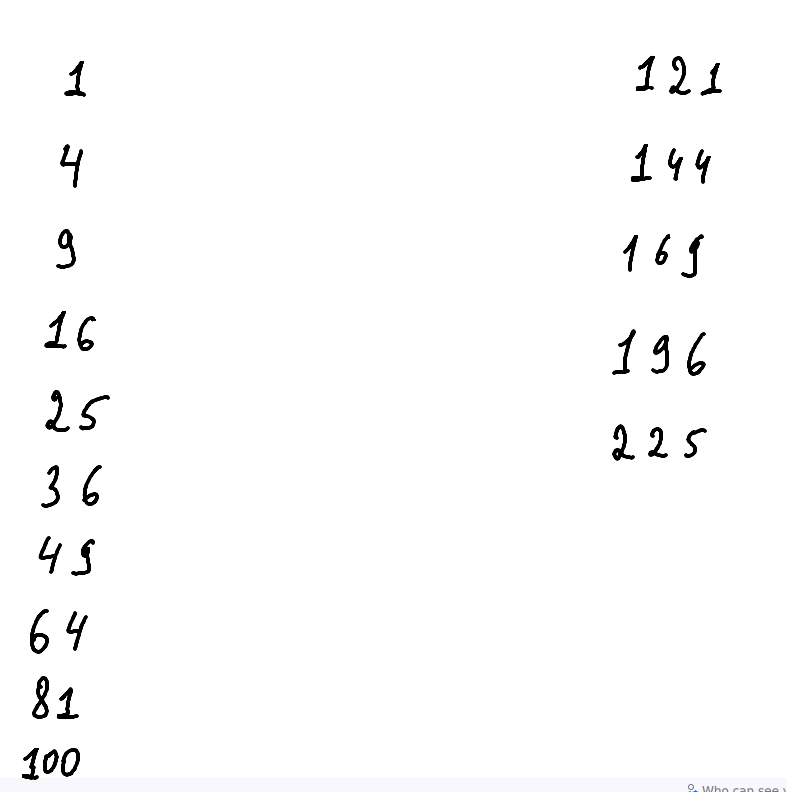 1
4
9
16
25
36
49
64
81
100
121
144
169
196
225
Who can see